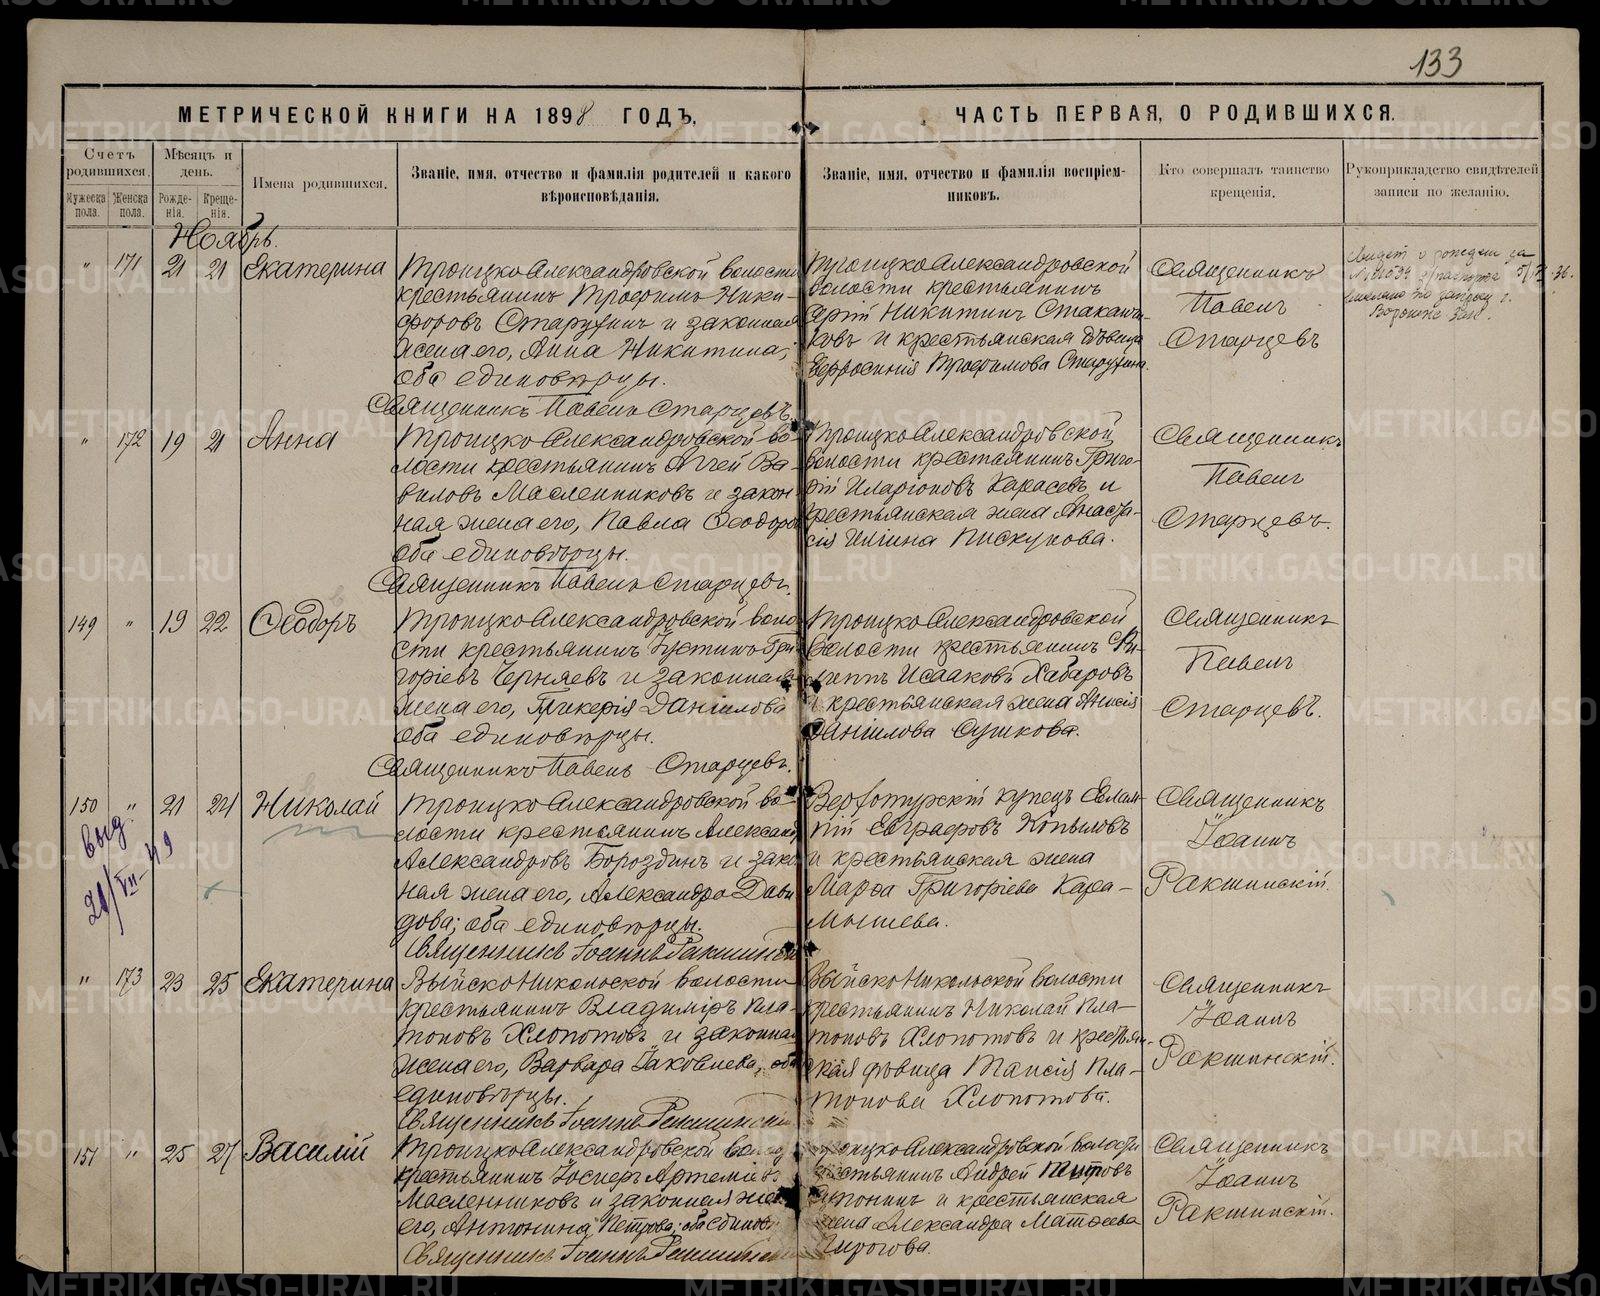 133
МЕТРИЧЕСКОЙ КНИГИ НА 1898 ГОДЪ, ЧАСТЬ ПЕРВАЯ, О РОДИВШИХСЯ.
Счетъ родившихся.
Мужеска пола.
Женска пола.
Мѣсяцъ и день.
Рожденія.
Крещенія.
Имена родившихся.
Званіе, имя, отчество и фамилія родителей и какого вѣроисповѣданія.
Званіе, имя, отчество и фамилія воспріемниковъ.
Кто совершалъ таинство крещенія.
Рукоприкладство свидѣтелей записи по желанію.
Ноябрь.
" 171 21 21 Екатерина
Троицко Александровской волости
крестьянинъ Трофимъ Ники-
форовъ Старухинъ и законная
жена его, Анна Никитина,
оба единовѣрцы.
Священникъ Павелъ Старцевъ.
Троицко Александровской
волости крестьянинъ
Никитинъ
и крестьянская дѣвица
Евфросинія Трофимова Старухина.
Священникъ
Павелъ
Старцевъ
" 172 19 21 Анна
Троицко Александровской во-
лости крестьянинъ Ва-
виловъ Масленниковъ и закон-
ная жена его, Павла Ѳеодоро
оба единовѣрцы.
Священникъ Павелъ Старцевъ.
Троицко Александровской
волости крестьянинъ Григо-
рій Иларіоновъ Карасевъ и
крестьянская жена Анаста-
сія Ильина Пискунова.
Священникъ
Павелъ
Старцевъ.
149 " 19 22 Ѳеодоръ
Троицко Александровской воло
сти крестьянинъ Іустинъ Гри-
горіевъ Черняевъ и законная
жена его, Гликерія Даніилова
оба единовѣрцы.
Священникъ Павелъ Старцевъ.
Троицко Александровской
волости крестьянинъ Фи-
липпъ Исааковъ Хабаровъ
и крестьянская жена Анисія
Даніилова Сушкова.
Священникъ
Павелъ
Старцевъ.
150 " 21 24 Николай
выд.
21/VII-49
Троицко Александровской во-
лости крестьянинъ Александ
Александровъ Бороздинъ и зако
ная жена его, Александра Дави
дова; оба единовѣрцы.
Священникъ Іоаннъ Ракшинскій
Верхотурскій купецъ Евлам-
пій Евграфовъ Копыловъ
и крестьянская жена
Марѳа Григоріева Кара-
мышева.
Священникъ
Іоаннъ
Ракшинскій.
" 173 23 25 Екатерина
Выйско Никольской волости
крестьянинъ Владиміръ Пла-
тоновъ Хлопотовъ и законная
жена его, Варвара Іаковлева, оба
единовѣрцы.
Священникъ Іоаннъ Ракшинскій
Выйско Никольской волости
крестьянинъ Николай Пла-
тоновъ Хлопотовъ и крестьян-
ская дѣвица Таисія Пла-
тонова Хлопотова.
Священникъ
Іоаннъ
Ракшинскій.
151 " 25 27 Василій
Троицко Александровской волости
крестьянинъ Іосифъ Артеміевъ
Масленниковъ и законная жена
его, Антонина Петрова; оба единов
Священникъ Іоаннъ Ракшинскій
Троицко Александровской волости
крестьянинъ Андрей Титовъ
и крестьянская
жена Александра Матѳеева
Пирогова.
Священникъ
Іоаннъ
Ракшинскій.
METRIKI.GASO-URAL.RU